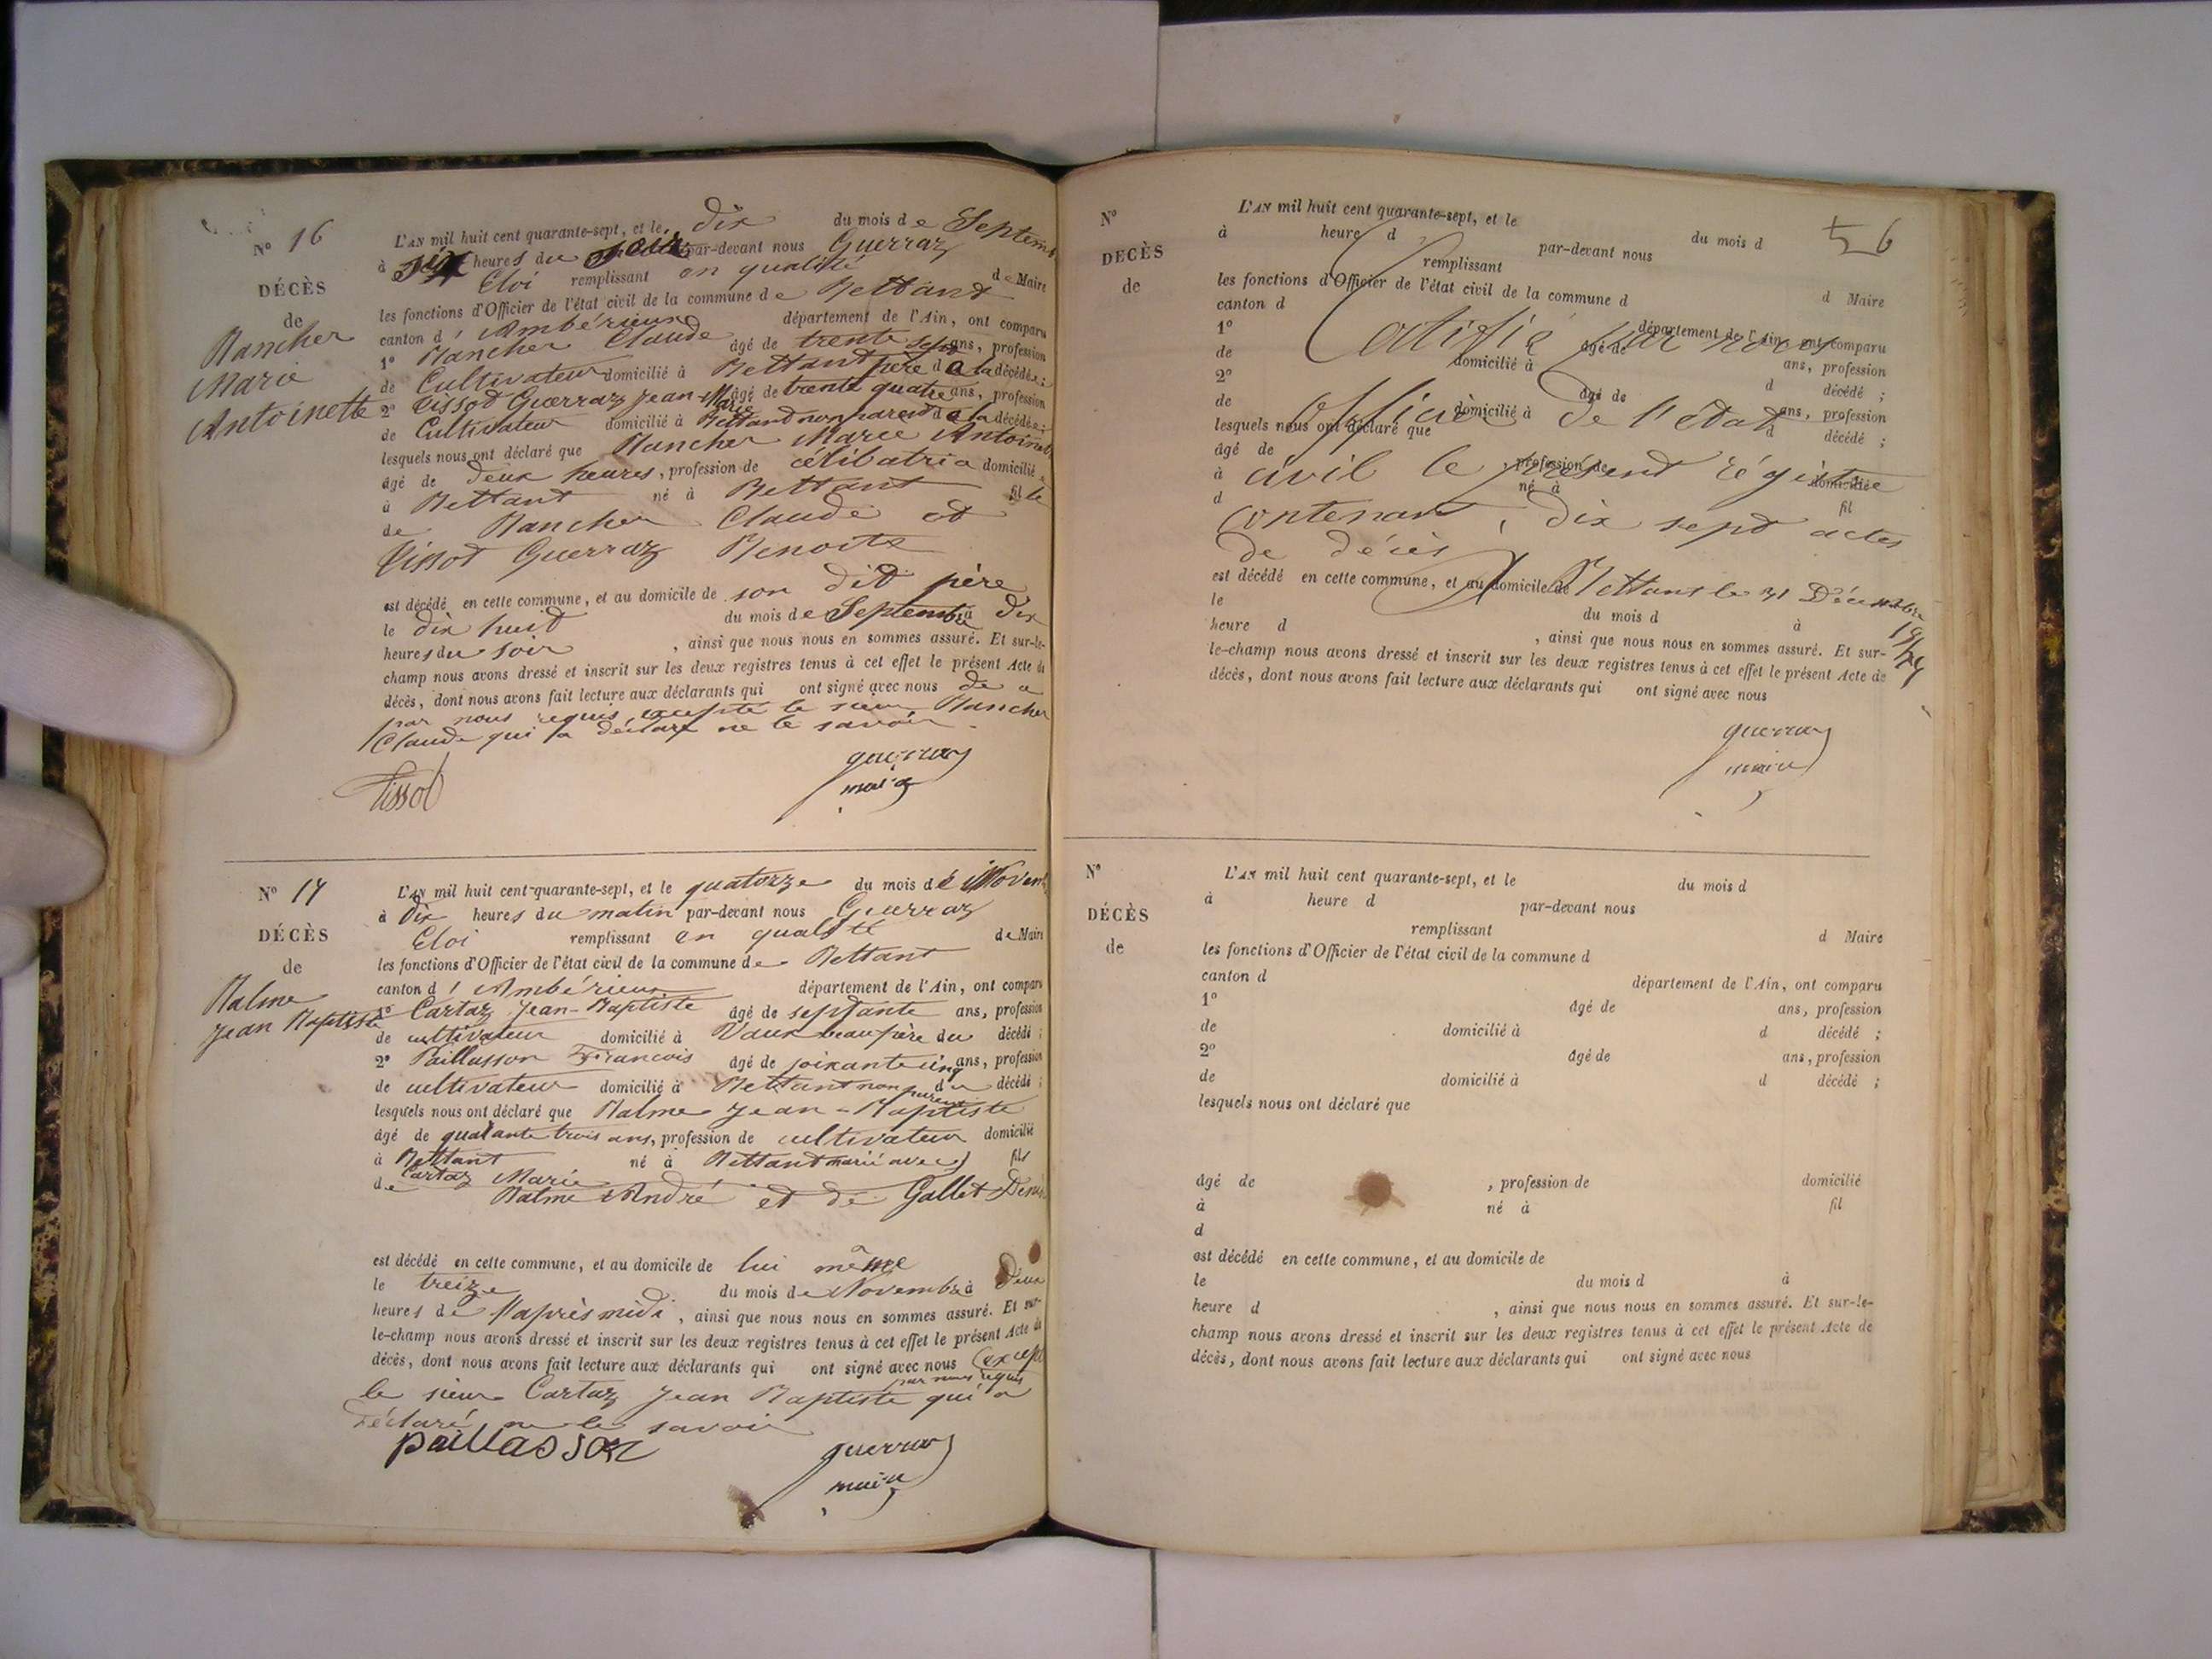 N° 16
DÉCÈS
de
Rancher
Marie
Antoinette
L'AN mil huit cent quarante-sept, et le dix du mois de Septemb
à heures du soir par-devant nous Guerraz
Eloi remplissant en qualité de Maire
les fonctions d'Officier de l'état civil de la commune de Bettant
canton d'Ambérieux département de l'Ain, ont comparu
1° Rancher Claude âgé de trente sept ans, profession
de Cultivateur domicilié à Bettant père de la décédée;
2° Tissot Guerraz Jean-Marie âgé de trente quatre ans, profession
de Cultivateur domicilié à Bettant non parent de la décédée;
lesquels nous ont déclaré que Rancher Marie Antoinette
âgé de deux heures, profession de célibatria domicilié
à Bettant né à Bettant fille
de Rancher Claude et
Tissot Guerraz Benoite
est décédé en cette commune, et au domicile de son dit père
le dix huit du mois de Septembre à dix
heures du soir, ainsi que nous nous en sommes assuré. Et sur-le-
champ nous avons dressé et inscrit sur les deux registres tenus à cet effet le présent Acte de
décès, dont nous avons fait lecture aux déclarants qui ont signé avec nous de ce
par nous requis excepté le sieur Rancher
Claude qui a déclaré ne le savoir
Tissot
guerraz
maire
N° 17
DÉCÈS
de
Balme
Jean Baptiste
L'AN mil huit cent quarante-sept, et le quatorze du mois de Novemb
à dix heures du matin par-devant nous Guerraz
Eloi remplissant en qualité de Maire
les fonctions d'Officier de l'état civil de la commune de Bettant
canton d'Ambérieux département de l'Ain, ont comparu
1° Cartaz Jean-Baptiste âgé de septante ans, profession
de cultivateur domicilié à Vaux beau père du décédé;
2° Paillasson François âgé de soixante cinq ans, profession
de cultivateur domicilié à Bettant non parent du décédé;
lesquels nous ont déclaré que Balme Jean-Baptiste
âgé de quarante trois ans, profession de cultivateur domicilié
à Bettant né à Bettant marié avec fils
Cartaz Marie
de Balme André et de Gallet Denis
est décédé en cette commune, et au domicile de lui même
le treize du mois de Novembre à deux
heures de l'après midi, ainsi que nous nous en sommes assuré. Et sur-
le-champ nous avons dressé et inscrit sur les deux registres tenus à cet effet le présent Acte de
décès, dont nous avons fait lecture aux déclarants qui ont signé avec nous except
par nous requis
le sieur Cartaz Jean Baptiste qui a
déclaré ne le savoir
paillasson
guerraz
maire
N°
DÉCÈS
de
L'AN mil huit cent quarante-sept, et le du mois d
à heure d par-devant nous
remplissant d Maire
les fonctions d'Officier de l'état civil de la commune d
canton d département de l'Ain, ont comparu
1° âgé de ans, profession
de domicilié à d décédé;
2° âgé de ans, profession
de domicilié à d décédé;
lesquels nous ont déclaré que
âgé de profession de domicilié
à né à fil
d
Certifié par nous
officier de l'état
civil le présent régistre
contenant, dix sept actes
de décès
Bettant le 31 Décembre
1847
est décédé en cette commune, et au domicile de
le du mois d à
heure d, ainsi que nous nous en sommes assuré. Et sur-
le-champ nous avons dressé et inscrit sur les deux registres tenus à cet effet le présent Acte de
décès, dont nous avons fait lecture aux déclarants qui ont signé avec nous
guerraz
maire
N°
DÉCÈS
de
L'AN mil huit cent quarante-sept, et le du mois d
à heure d par-devant nous
remplissant d Maire
les fonctions d'Officier de l'état civil de la commune d
canton d département de l'Ain, ont comparu
1° âgé de ans, profession
de domicilié à d décédé;
2° âgé de ans, profession
de domicilié à d décédé;
lesquels nous ont déclaré que
âgé de, profession de domicilié
à né à fil
d
est décédé en cette commune, et au domicile de
le du mois d à
heure d, ainsi que nous nous en sommes assuré. Et sur-le-
champ nous avons dressé et inscrit sur les deux registres tenus à cet effet le présent Acte de
décès, dont nous avons fait lecture aux déclarants qui ont signé avec nous